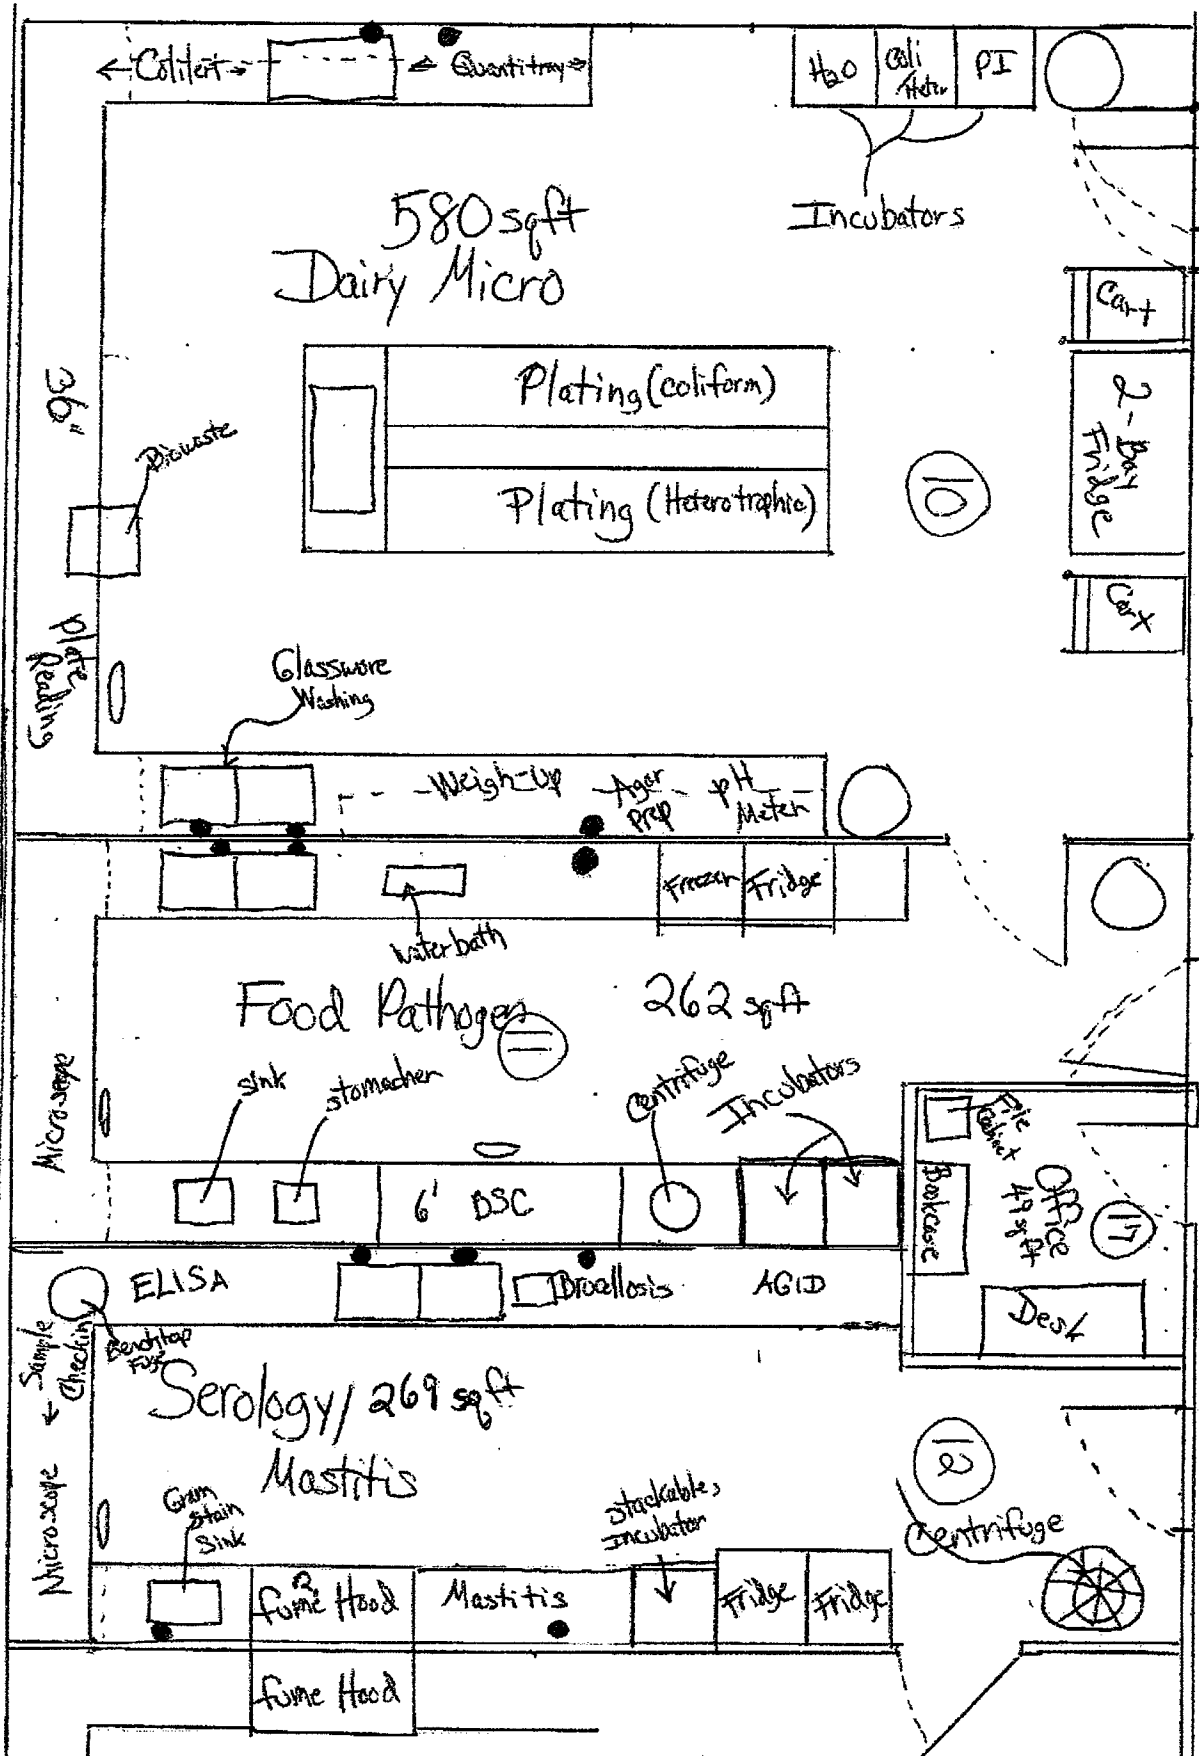 Colilert
Quantitray
H2O
Coli
/Heter
PI
Incubators
580 sqft
Dairy Micro
Cart
36"
Plating (coliform)
2-Bay
Fridge
Biowaste
10
Plating (Heterotrophic)
Cart
Plate
Reading
Glassware
Washing
Weigh-up
Agar
Prep
pH
Meter
Freezer
Fridge
Waterbath
Food Pathogen
262 sqft
11
Microscope
Sink
Stomacher
Centrifuge
Incubators
File
Cabinet
6' BSC
Bookcase
Office
49 sq ft
17
ELISA
Brucellosis
AGID
Desk
Sample
Checkin
Benchtop
Fuge
Serology/ 269 sqft
Mastitis
12
Microscope
Gram
Stain
Sink
Stackable
Incubator
Centrifuge
fume Hood
Mastitis
Fridge
Fridge
fume Hood